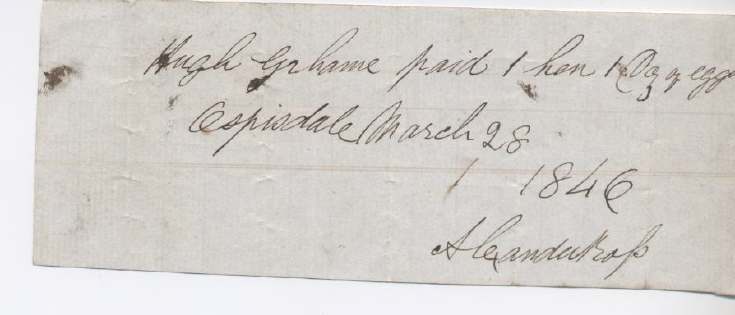 Hugh Grhame paid 1 hen 1 Doz of eggs
Espisdale March 28
1846
Alexander Ross